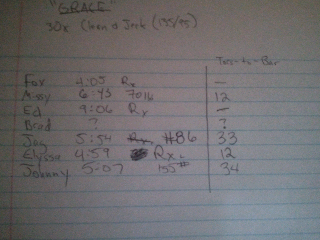 "GRACE"
30x Clean & Jerk (135/95)
Toes-to-Bar
Fox 4:05 Rx —
Amy 6:43 70lb 12
Ed 9:06 Rx —
Brad ? ?
Jay 5:54 #86 33
Elyssa 4:59 Rx 12
Johnny 5:07 155# 34